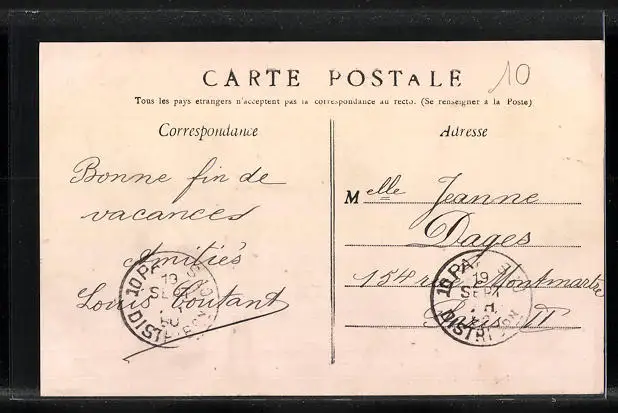 CARTE POSTALE
10
Tous les pays etrangers n'acceptent pas la correspondance au recto. (Se renseigner à la Poste)
Correspondance
Adresse
Bonne fin de
vacances
Amitiés
Louis Coutant
Melle Jeanne
Dages
154 rue Montmartre
Paris II
10 PA
19
SEPT
DISTRIBUTION
10 PA
19
SEPT
DISTRIBUTION